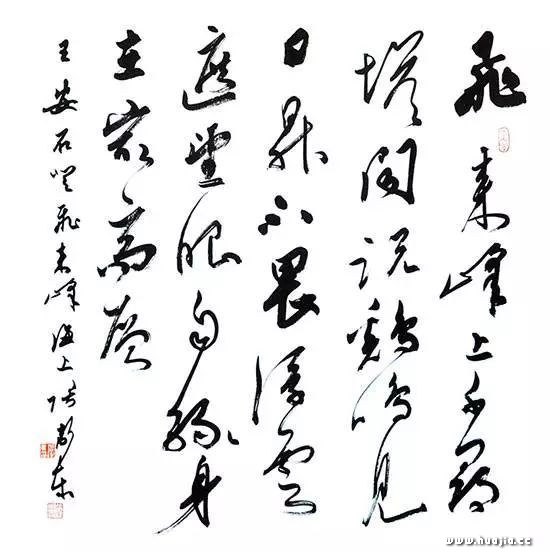 飛来峰上千尋
塔聞説鷄鳴見
日昇不畏浮雲
遮望眼自緣身
在最高層
王安石登飛来峰海上
www.huajia.cc